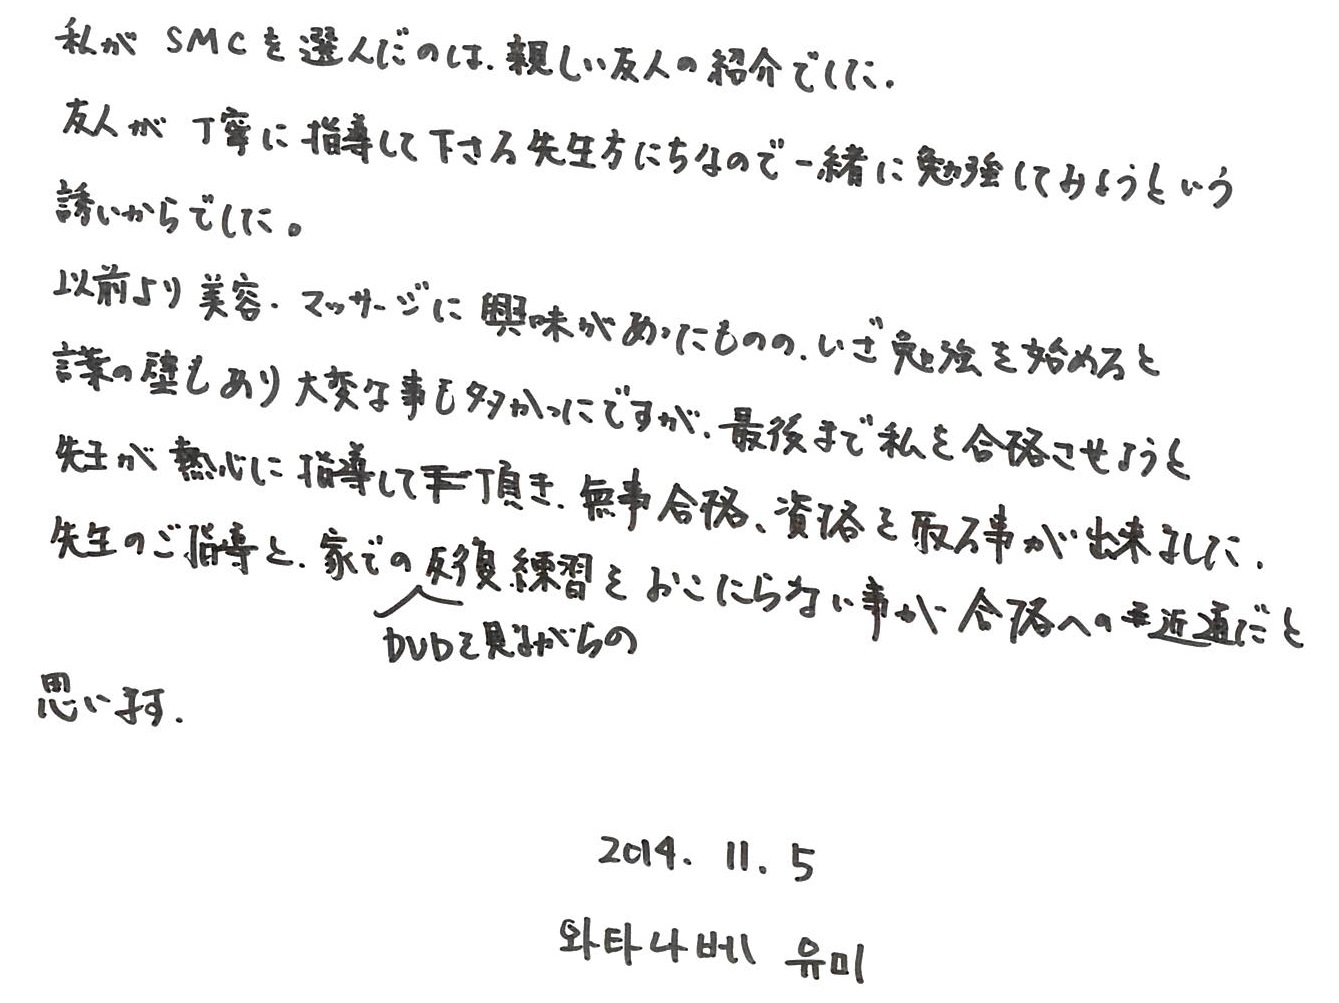 私が SMCを選んだのは、親しい友人の紹介でした.
友人が 丁寧に指導して下さる先生方たちなので一緒に勉強してみようという
誘いからでした。
以前より美容・マッサージに興味があったものの、いざ勉強を始めると
言葉の壁もあり大変な事も多かったですが、最後まで私を合格させようと
先生が熱心に指導して頂き、無事合格、資格を取る事が出来ました.
先生のご指導と、家での反復練習をおこたらない事が合格への近道だと
DVDを見ながらの
思います.
2014. 11. 5
와타나베 유미